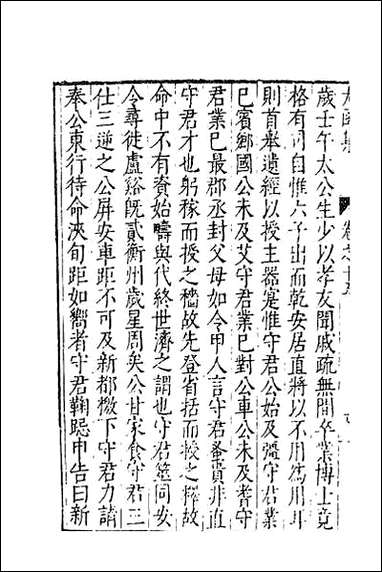 歲壬午太公生少以孝友聞戚疏無間卒業博士竟
格有司自惟六子出而乾安居直將以不用為用耳
則首舉遺經以授主器寔惟守君公始及彊守君業
巳賓鄉國公未及艾守君業巳對公車公未及耆守
君業巳最郡丞封父母如令甲人言守君蚤貴非直
守君才也躬稼而授之穡故先登省括而授之釋故
命中不有菑始疇與代終世濟之謂也守君筮同安
令尋徙盧谿既貳衡州歲星周矣公甘家食守君三
仕三逆之公屏安車距不可及新都檄下守君力請
奉公東行待命浹旬距如嚮者守君鞠跽申告曰新